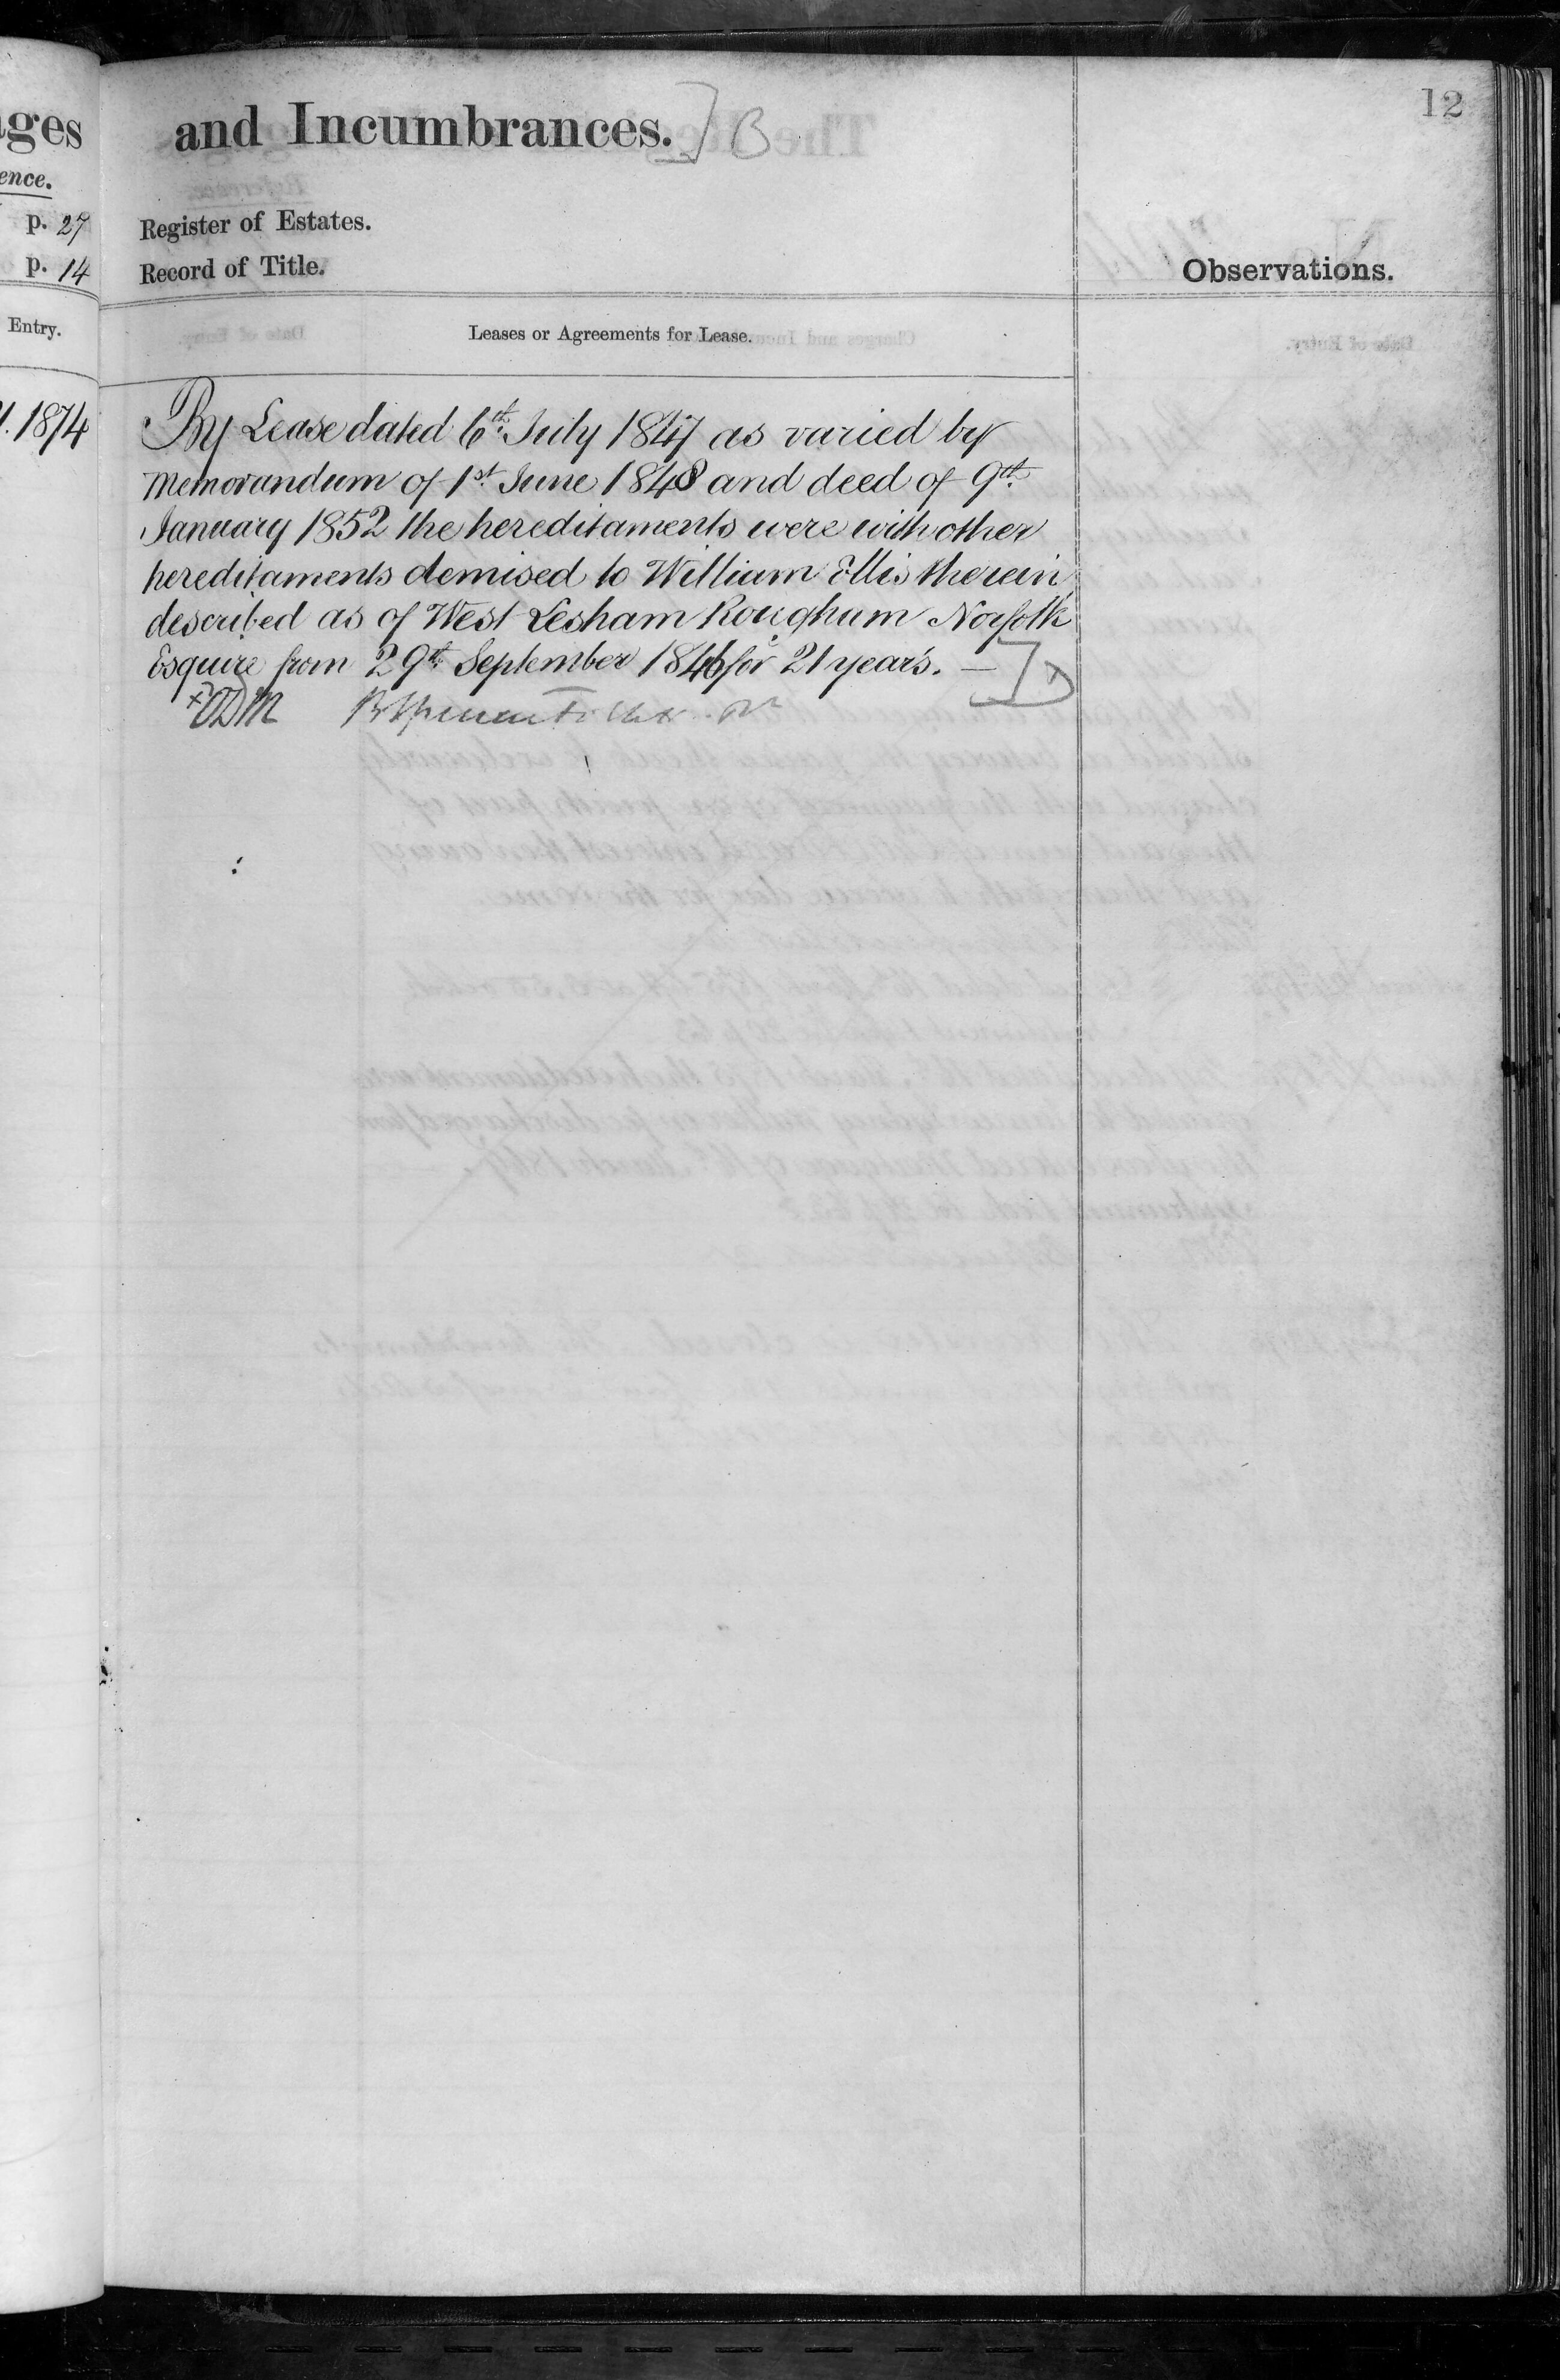 12
and Incumbrances.] B
ges
ence.
p. 27
Register of Estates.
p. 14
Record of Title.
Observations.
Entry.
Leases or Agreements for Lease.
1874
By Lease dated 6th July 1847 as varied by
Memorandum of 1st June 1848 and deed of 9th
January 1852 the hereditaments were with other
hereditaments demised to William Ellis therein
described as of West Lesham Rougham Norfolk
Esquire from 29th September 1846 for 21 years. —